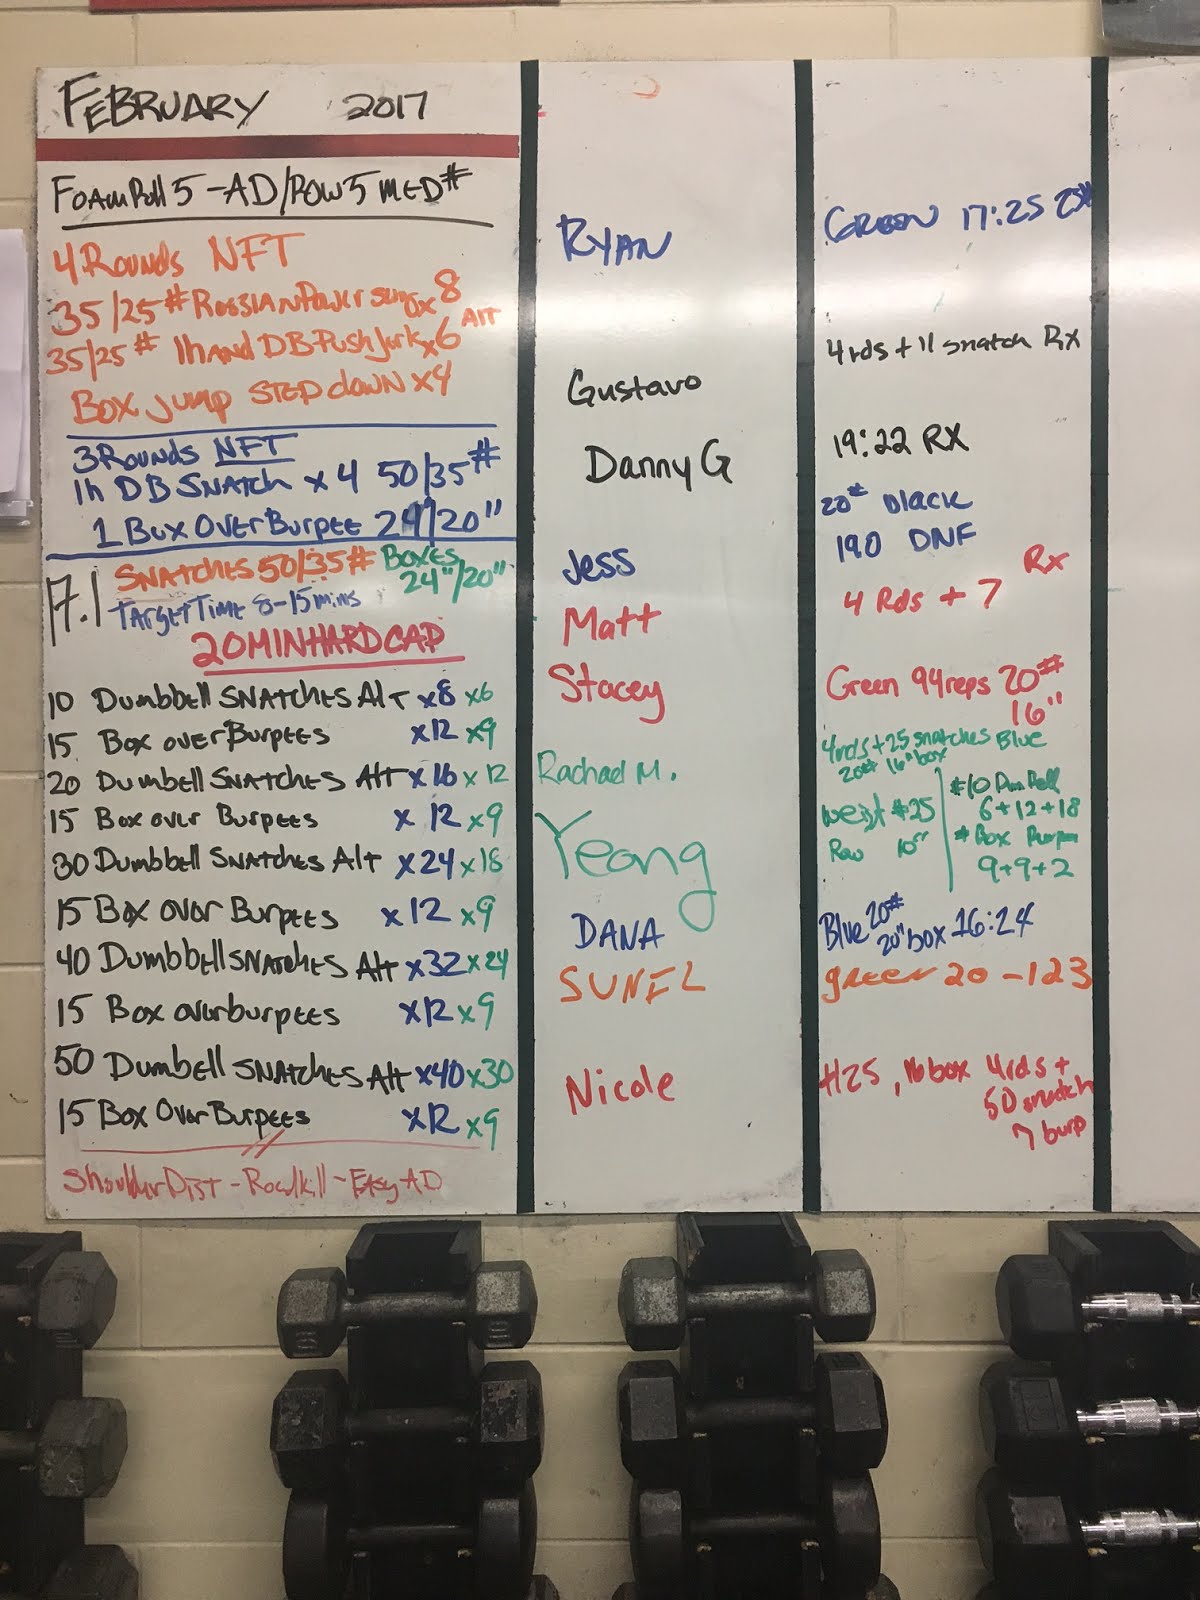 FEBRUARY 2017
FOAM Roll 5 - AD/ROW 5 MED #
4 Rounds NFT
35/25 # RUSSIAN Power swing x 8
35/25 # 1hAND DB Push Jerk x 6 Alt
BOX jump STEP down x 4
3 Rounds NFT
1h DB SNATCH x 4 50/35 #
1 Box Over Burpee 24"/20"
17.1 SNATCHES 50/35 # BOXES
24"/20"
TARGET TIME 8-15 mins
20 MIN HARD CAP
10 Dumbbell SNATCHES Alt x8 x6
15 Box over Burpees x12 x9
20 Dumbell SNATCHES Alt x16 x12
15 Box over Burpees x 12 x9
30 Dumbbell SNATCHES Alt x24 x18
15 Box over Burpees x12 x9
40 Dumbbell SNATCHES Alt x32 x24
15 Box over burpees x12 x9
50 Dumbell SNATCHES Alt x40 x30
15 Box Over Burpees x12 x9
Shoulder Dist - Roadkill - Easy AD
RYAN
Gustavo
Danny G
Jess
Matt
Stacey
Rachael M.
Yeong
DANA
SUNFL
Nicole
GREEN 17:25
4 rds + 11 snatch Rx
19:22 RX
20# black
190 DNF
Rx
4 Rds + 7
Green 94 reps 20#
16"
4rds + 25 snatches Blue
20# 16" box
#25
Row
6+12+18
# Box
9+9+2
Blue 20#
20" box 16:24
green 20 - 123
#25, 16 box 4rds +
50 snatch
7 burp